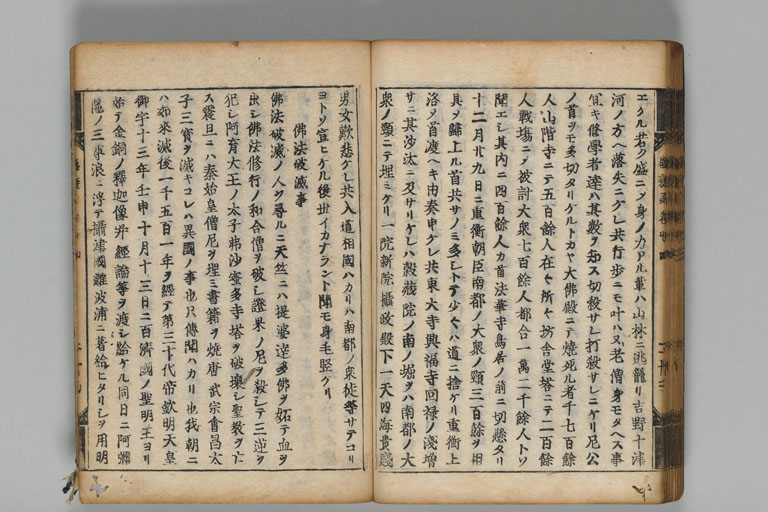 エタル若ク盛ニメ身ノ力アル輩ハ山林ニ逃籠リ吉野十津
河ノ方ヘ落失ニケレ共行歩ニモ叶ハヌ老僧身モタヘス事
宜キ修學者達ハ其數ヲ知ス切殺サレ打殺サレニケリ尼公
ノ首ヲモ多切タリケルトカヤ大佛殿ニテ燒死ル者千七百餘
人山階寺ニテ五百餘人在々所々坊舎堂塔ニテ二百餘
人戰塲ニテ被討大衆七百餘人都合一萬二千餘人トソ
聞エシ其内ニ四百餘人カ首法華寺鳥居ノ前ニ切懸タリ
十二月廿九日ニ重衡朝臣南都ノ大衆ノ頸三百餘ヲ相
具ヲ歸上ル首共サノミ多シトテ少々ハ道ニ捨ケリ重衡上
洛ヲ首渡ヘキ由奏申ケレ共東大寺興福寺回禄ノ淺増
サニ其沙汰ニ及サリケレハ穀藏院ノ南ノ堀ヲハ南都ノ大
衆ノ頸ニテ埋ミケリ一院新院攝政殿下一天四海貴賤
男女歎悲ケレ共入道相國ハカリハ南都ノ衆徒等サテコリ
ヨトソ宣ヒケル後世イカナラント聞モ身毛竪ケリ
佛法破滅事
佛法破滅ノ人ヲ尋ルニ天竺ニハ提婆達多佛ヲ妬テ血ヲ
出シ佛法修行ノ和合僧ヲ破シ證果ノ尼ヲ殺シテ三逆ヲ
犯シ阿育大王ノ太子弗沙蜜多寺塔ヲ破壞シ聖教ヲ亡
ス震旦ニハ秦始皇僧尼ヲ埋ミ書籍ヲ燒唐武宗會昌太
子三寳ヲ滅キコレハ異國ノ事也只傳聞ハカリ也我朝ニ
ハ如來滅後一千五百一年ヲ經テ第三十代帝欽明天皇
御宇十三年壬申十月十三日ニ百濟國ノ聖明王ヨリ
始テ金銅ノ釋迦像并經論等ヲ渡シ給ケル同日ニ阿彌
陀ノ三尊浪ニ浮テ攝津國難波浦ニ著給ヒタリシヲ用明